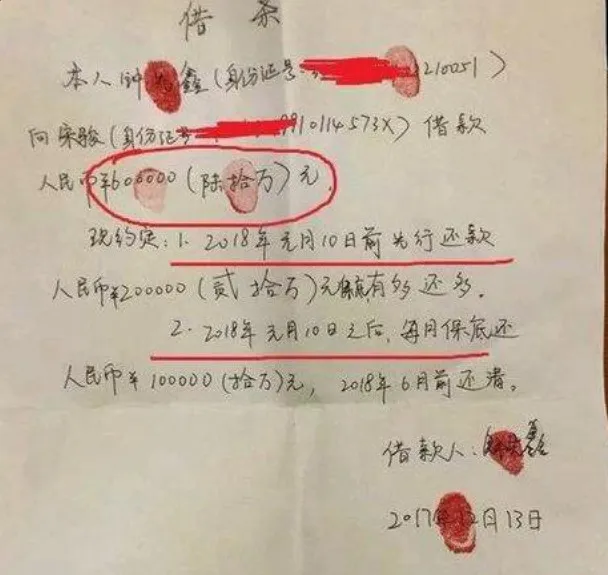 借条
本人钟鑫(身份证号:210051)
向宋骏(身份证号9910114573X)借款
人民币¥600000(陆拾万)元,
现约定:1. 2018年元月10日前先行还款
人民币¥200000(贰拾万)元有多还多。
2. 2018年元月10日之后,每月保底还
人民币¥100000(拾万)元,2018年6月前还清。
借款人:
2017年12月13日